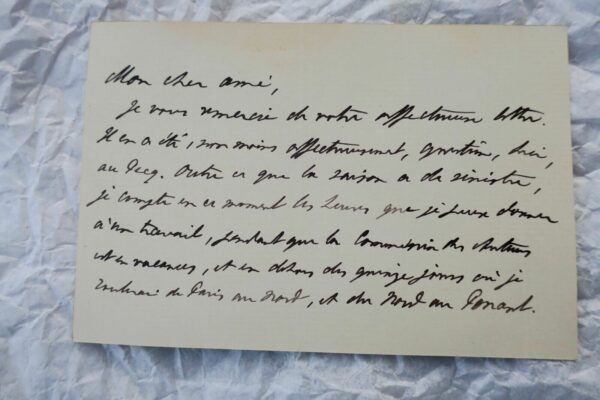 Mon cher ami,
Je vous remercie de votre affectueuse lettre.
Il en a été, non moins affectueusement, question, hier,
au Pecq. Outre ce que la saison a de sinistre,
je compte en ce moment les heures que je peux donner
à mon travail, pendant que la Commission des
est en vacances, et en dehors des quinze jours où je
de Paris au Nord, et du Nord au Ponant.